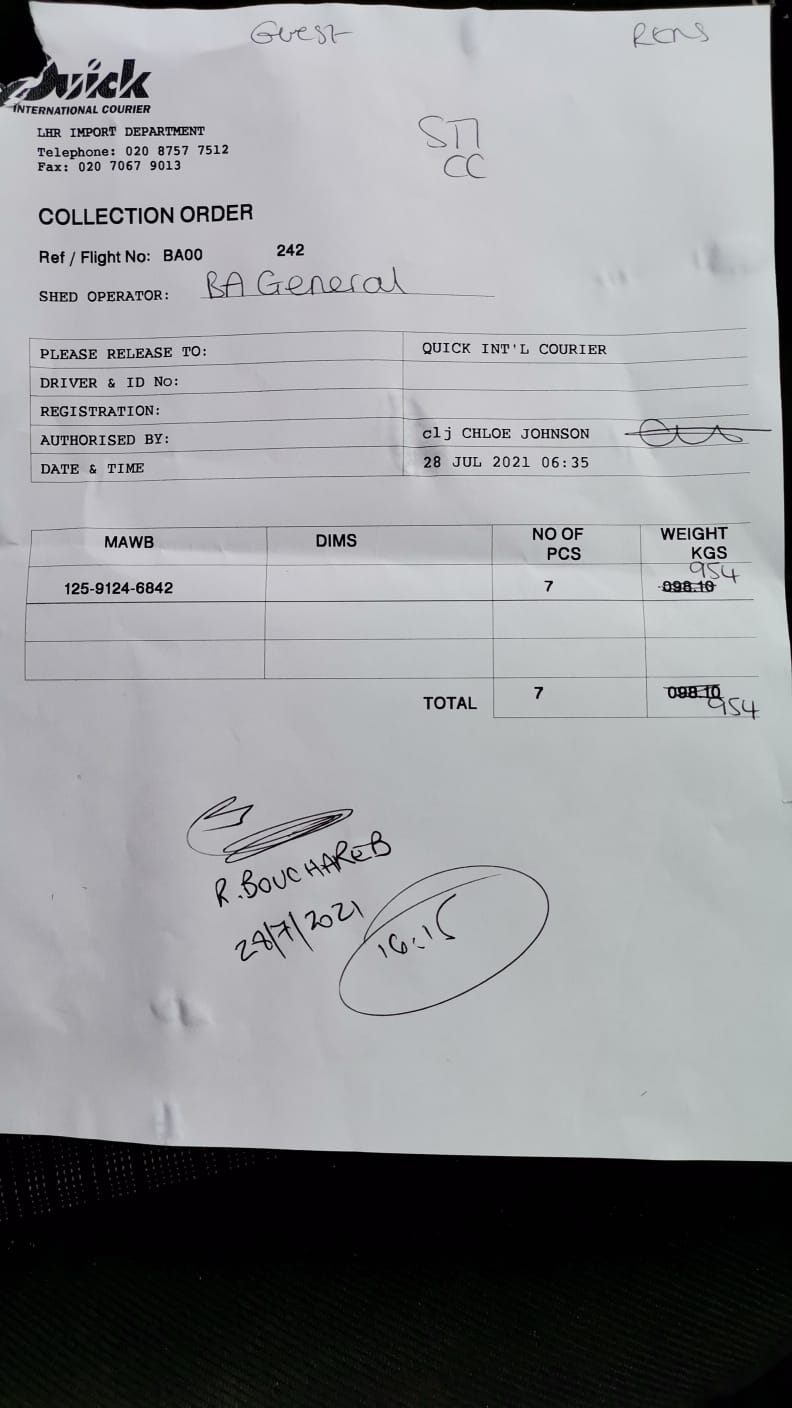 Guest
RENS
Quick
INTERNATIONAL COURIER
LHR IMPORT DEPARTMENT
Telephone: 020 8757 7512
Fax: 020 7067 9013
STI
CC
COLLECTION ORDER
Ref / Flight No: BA00 242
SHED OPERATOR: BA General
PLEASE RELEASE TO: QUICK INT'L COURIER
DRIVER & ID No:
REGISTRATION:
AUTHORISED BY: clj CHLOE JOHNSON
DATE & TIME 28 JUL 2021 06:35
MAWB DIMS NO OF PCS WEIGHT KGS
954
125-9124-6842 7 098.10
TOTAL 7 098.10
954
R. BOUCHAREB
28/7/2021
16:15